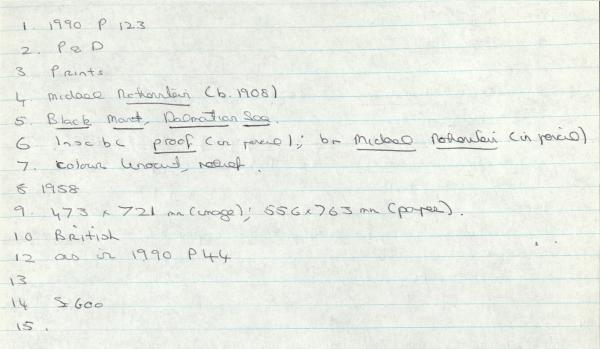 1. 1990 P 123
2. P & D
3 Prints
4. Michael Rothenstein (b. 1908)
5. Black Mast, Dalmatian Sea.
6 Insc b c proof (in pencil); br Michael Rothenstein (in pencil)
7. Colour linocut, relief.
8 1958
9. 473 x 721 mm (image); 556 x 763 mm (paper).
10 British
12 as in 1990 P44
13
14 600
15.